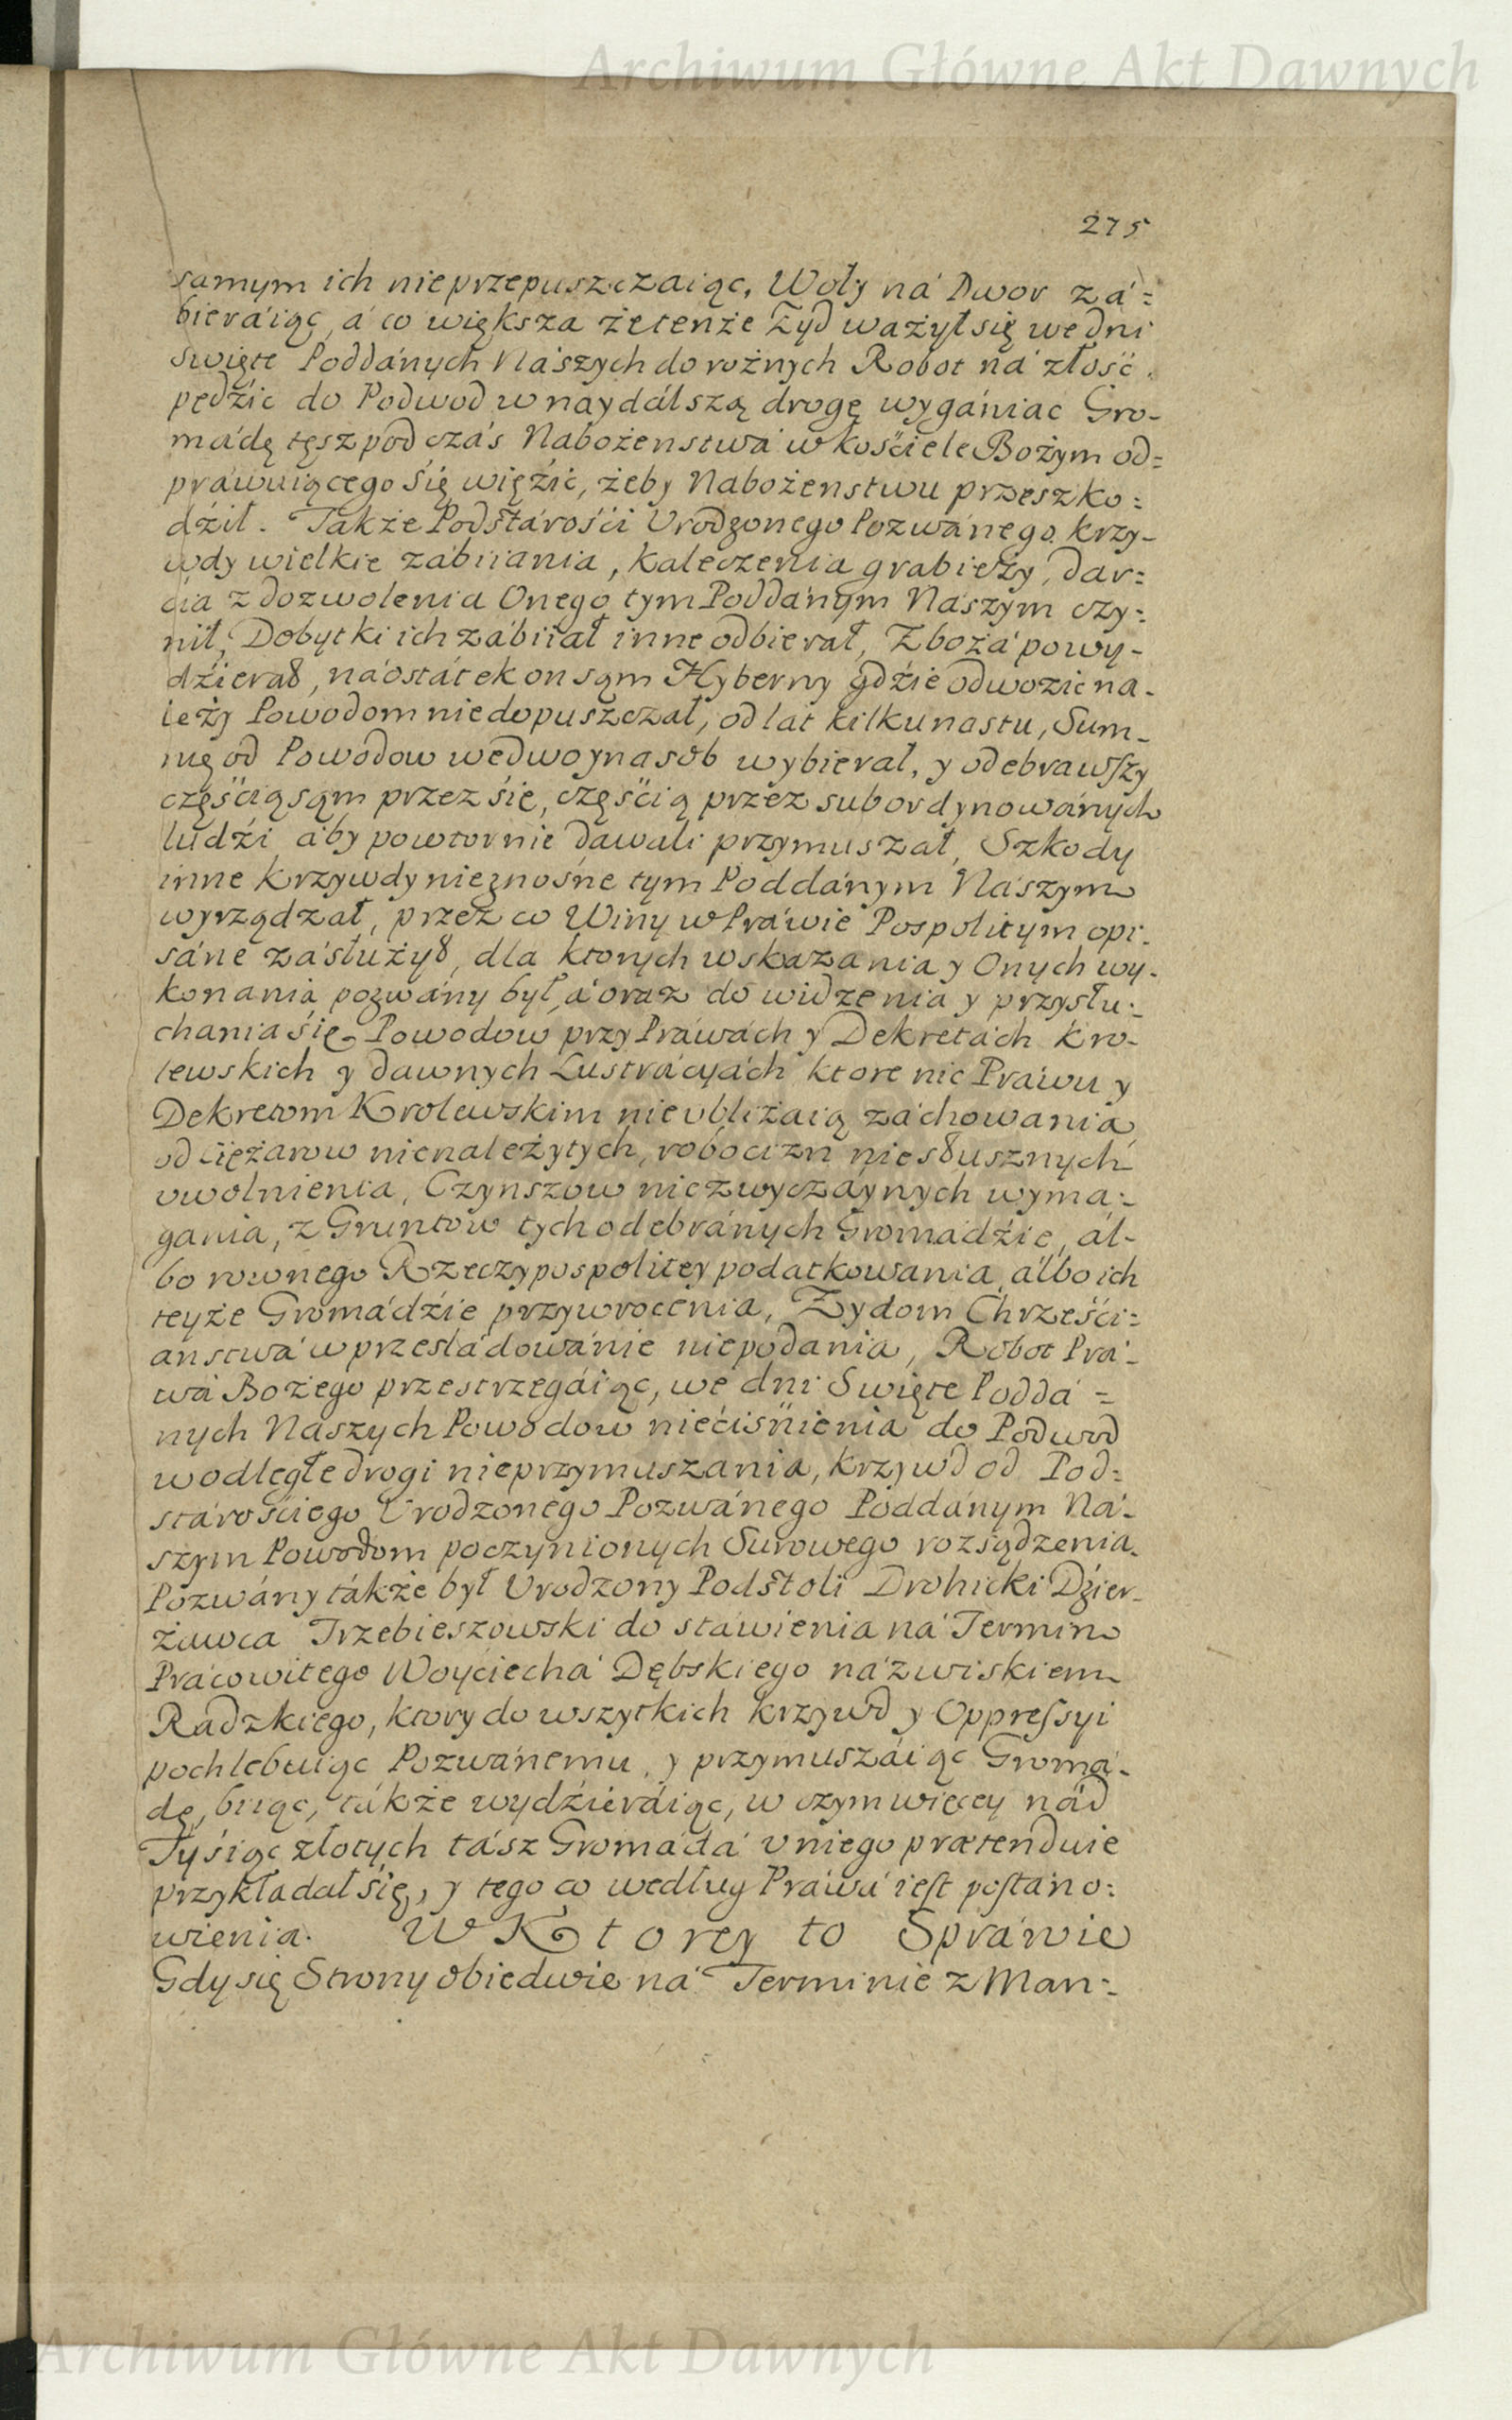 Archiwum Główne Akt Dawnych
275
samym ich nieprzepuszczaiąc, Woły ná Dwor zá=
bieráiąc, á co większa żetenże Żyd ważył się we dni
Swięte Poddánych Nászych do rożnych Robot ná złość
pędźić do Podwod w naydálszą drogę wyganiac Gro-
mádę tęsz pod czás Nabożenstwá w Kośćiele Bożym od=
práwuiącego się więźić, żeby Nabożenstwu przeszko=
dźił. Także Podstárośći Vrodzonego Pozwánego krzy-
wdy wielkie zabiiania, kaleczenia grabieży, dar=
cia z dozwolenia Onego tym Poddánym Nászym czy=
nił, Dobytki ich zábiiał inne odbierał, Zbożá powy-
dźierał, náostátek on sąm Hyberny gdźie odwozić na-
leży Powodom niedopuszczał, od lat kilkunastu, Sum-
mę od Powodow wedwoynasob wybierał, y odebrawszy
częśćią sąm przez się, częśćią przez subordynowánych
ludźi áby powtornie dawali przymuszał, Szkody
inne Krzywdy nieznośne tym Poddánym Nászym
wyrządzał, przez co Winy w Práwie Pospolitym opi-
sáne zásłużył, dla ktorych wskazania y Onych wy-
konania pozwány był, á oraz do widzenia y przysłu-
chania się Powodow przy Práwách y Dekretách Kro-
lewskich y dawnych Lustrácyách ktore nic Práwu y
Dekretom Krolewskim nieubliżaią záchowania
od ćiężarow nienależytych, roboćizn niesłusznych
uwolnienia, Czynszow niezwyczáynych wymá-
gania, z Gruntow tych odebránych Gromádźie, ál-
bo rownego Rzeczypospolitey podatkowania, álbo ich
teyże Gromádźie przywrocenia, Żydom Chrześći=
anstwá w prześládowánie niepodania, Robot Prá-
wá Bożego przestrzegáiąc, we dni Swięte Poddá=
nych Naszych Powodow nieciśńienia do Podwod
w odległe drogi nieprzymuszania, krzywd od Pod=
stárośćiego Vrodzonego Pozwánego Poddánym Ná-
szym Powodom poczynionych Surowego rozsądzenia.
Pozwány tákże był Vrodzony Podstoli Drohicki Dźier-
żawca Trzebieszowski do stáwienia ná Termin
Prácowitego Woyciechá Dębskiego názwiskiem
Radzkiego, ktory do wszytkich krzywd y Oppressyi
pochlebuiąc Pozwánemu, y przymuszáiąc Gromá-
dę, biiąc, tákże wydźieráiąc, w czym więcey nád
Tyśiąc złotych tász Gromádá u niego prætenduie
przykładał się, y tego co według Práwá iest postano=
wienia. W Ktorey to Spráwie
Gdy się Strony obiedwie ná Terminie z Man=
Archiwum Główne Akt Dawnych